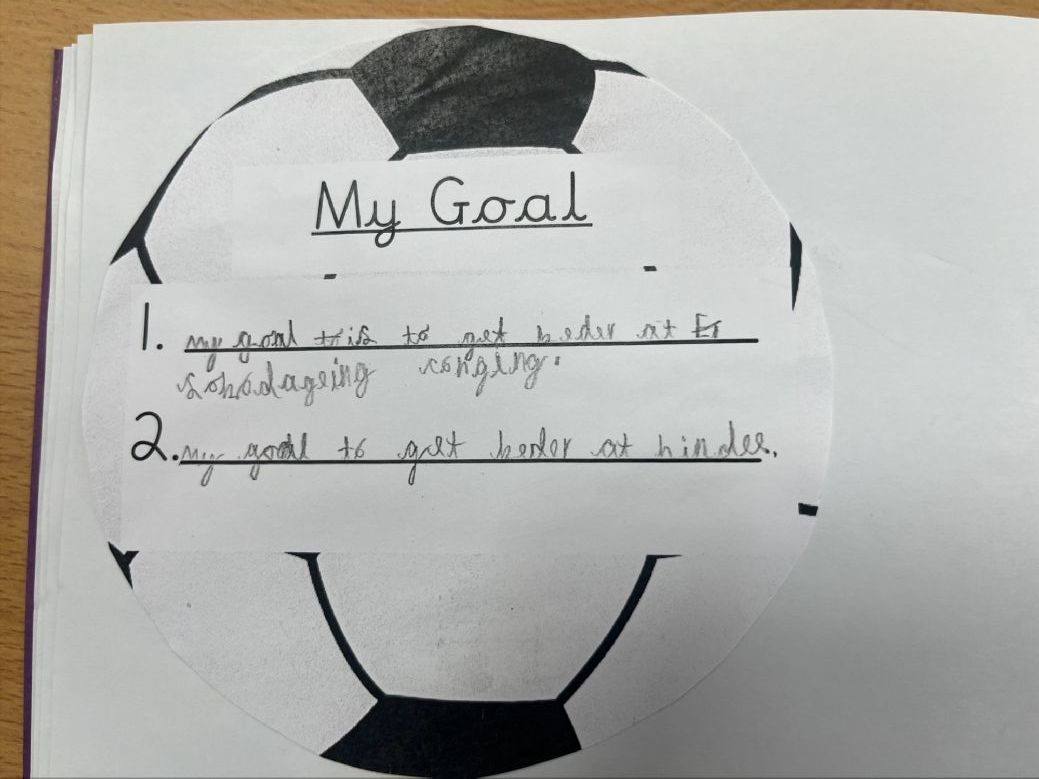 My Goal
1. my goal is to get beder at
conging.
2. my goal to get beder at hindes.